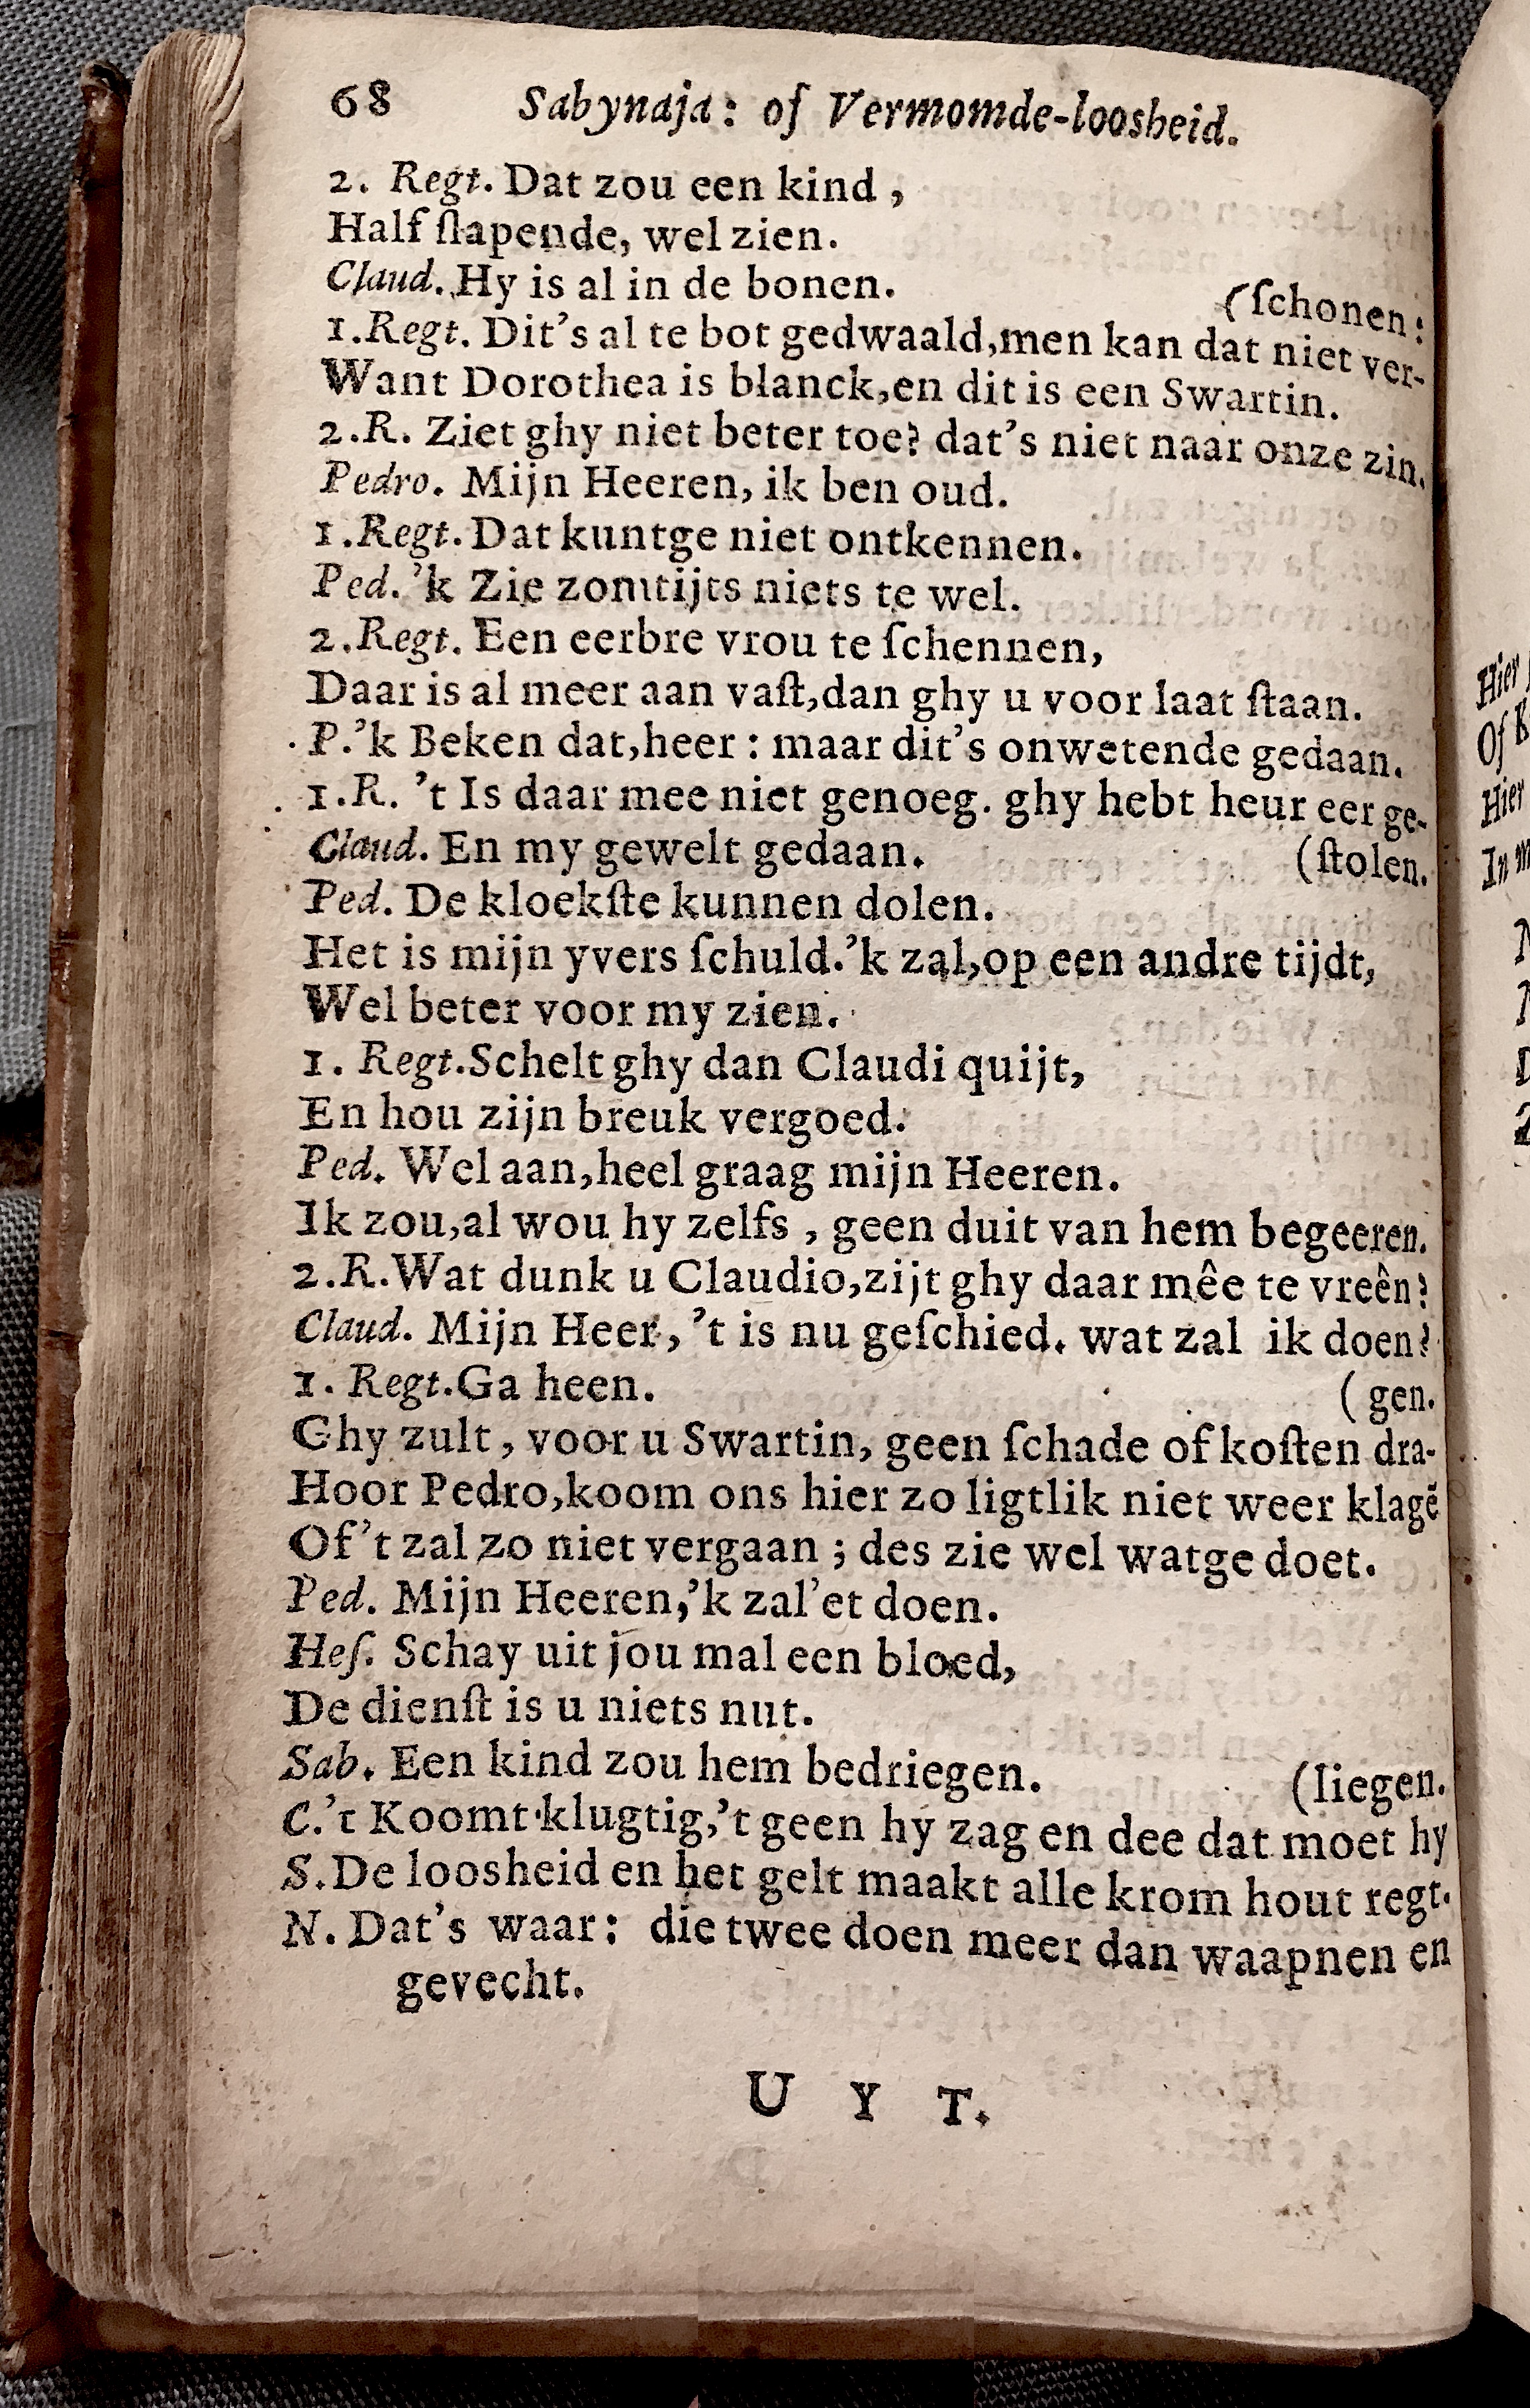 68 Sabynaja: of Vermomde-loosheid.
2. Regt. Dat zou een kind ,
Half ſlapende, wel zien.
Claud. Hy is al in de bonen.
(ſchonen:
1.Regt. Dit's al te bot gedwaald,men kan dat niet ver-
Want Dorothea is blanck,en dit is een Swartin.
2.R. Ziet ghy niet beter toe? dat's niet naar onze zin.
Pedro. Mijn Heeren, ik ben oud.
1.Regt. Dat kuntge niet ontkennen.
Ped. 'k Zie zomtijts niets te wel.
2.Regt. Een eerbre vrou te ſchennen,
Daar is al meer aan vaſt,dan ghy u voor laat ſtaan.
P.'k Beken dat,heer : maar dit's onwetende gedaan.
1.R. 't Is daar mee niet genoeg. ghy hebt heur eer ge-
Claud. En my gewelt gedaan. (ſtolen.
Ped. De kloekſte kunnen dolen.
Het is mijn yvers ſchuld.'k zal,op een andre tijdt,
Wel beter voor my zien.
1. Regt.Schelt ghy dan Claudi quijt,
En hou zijn breuk vergoed.
Ped. Wel aan,heel graag mijn Heeren.
Ik zou,al wou hy zelfs , geen duit van hem begeeren.
2.R.Wat dunk u Claudio,zijt ghy daar mêe te vreên?
Claud. Mijn Heer, 't is nu geſchied. wat zal ik doen?
1. Regt.Ga heen. ( gen.
Ghy zult, voor u Swartin, geen ſchade of koſten dra-
Hoor Pedro,koom ons hier zo ligtlik niet weer klagẽ
Of't zal zo niet vergaan ; des zie wel watge doet.
Ped. Mijn Heeren,'k zal'et doen.
Heſ. Schay uit jou mal een bloed,
De dienſt is u niets nut.
Sab. Een kind zou hem bedriegen. (liegen.
C.'t Koomt klugtig,'t geen hy zag en dee dat moet hy
S.De loosheid en het gelt maakt alle krom hout regt.
N. Dat's waar: die twee doen meer dan waapnen en
gevecht.
U Y T.
Hier
Of
Hier
In